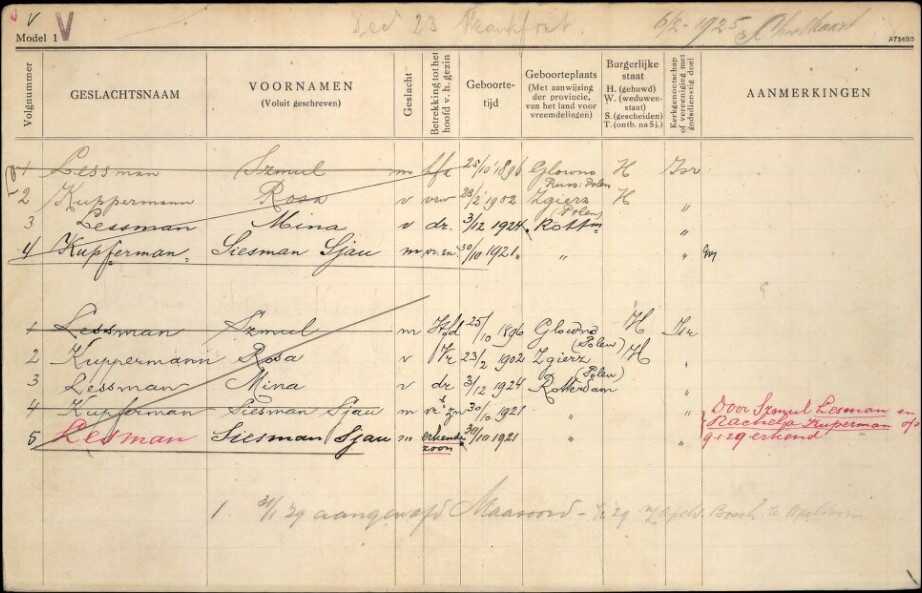 V V
Ded 23 Frankfort. 6/2-1925
Model 1 A73480
Volgnummer GESLACHTSNAAM VOORNAMEN (Voluit geschreven) Geslacht Betrekking tot het hoofd v. h. gezin Geboorte-tijd Geboorteplaats (Met aanwijzing der provincie, van het land voor vreemdelingen) Burgerlijke staat H. (gehuwd) W. (weduwe-staat) S. (gescheiden) T. (ontb. na Sj.) Kerkgenootschap of vereeniging met godsdienstig doel AANMERKINGEN
1 Lessman Szmul m hfd 25/10 1896 Glowno Russ. Polen H Isr
2 Kuppermann Rosa v vrw 23/2 1902 Zgierz Polen H "
3 Lessman Mina v dr. 3/12 1924 Rottm "
4 Kupferman Siesman Sjau m 30/10 1921. " "
1 Lessman Szmul m Hfd 25/10 1896 Glowno (Polen) H Isr
2 Kuppermann Rosa v Vr 23/2 1902 Zgierz (Polen) H "
3 Lessman Mina v dr 3/12 1924 Rotterdam "
4 Kupferman Siesman Sjau m vr. zn 30/10 1921 " "
5 Lesman Siesman Sjau m erkende zoon 30/10 1921 " "
Door Szmul Lesman en
Rachela Kuperman op
9-1-29 erkend
1. 31/1 29 aangewezen Maasoord - 29 Bosch te Apeldoorn